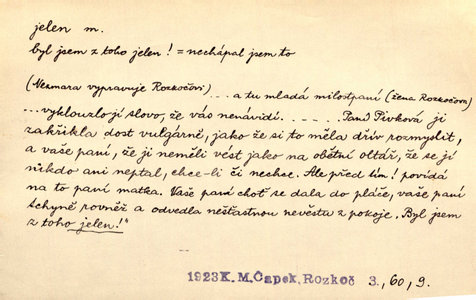 jelen m.
byl jsem z toho jelen! = nechápal jsem to
(Nezmara vypravuje Rozkočovi) ... a tu mladá milostpaní (žena Rozkočova)
... vyklouzlo jí slovo, že vás nenávidí. ..... Paní Pivková ji
zakřikla dost vulgárně, jako že si to měla dřív rozmyslit,
a vaše paní, že ji neměli vést jako na obětní oltář, že se jí
nikdo ani neptal, chce-li či nechce. Ale před tím! povídá
na to paní matka. Vaše paní choť se dala do pláče, vaše paní
tchyně rovněž a odvedla nešťastnou nevěstu z pokoje. Byl jsem
z toho jelen!"
1923 K. M. Čapek, Rozkoč 3., 60, 9.